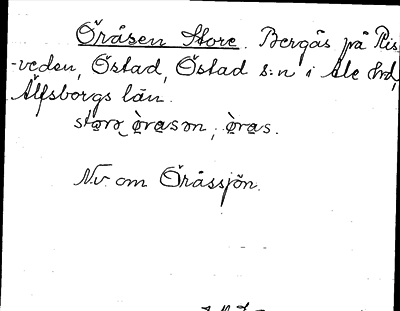 Öråsen Store. Bergås på Ris
-veden, Östad, Östad s:n i Ale hd,
Älfsborgs län.
storə òrasən, òras.
N.v. om Öråssjön.